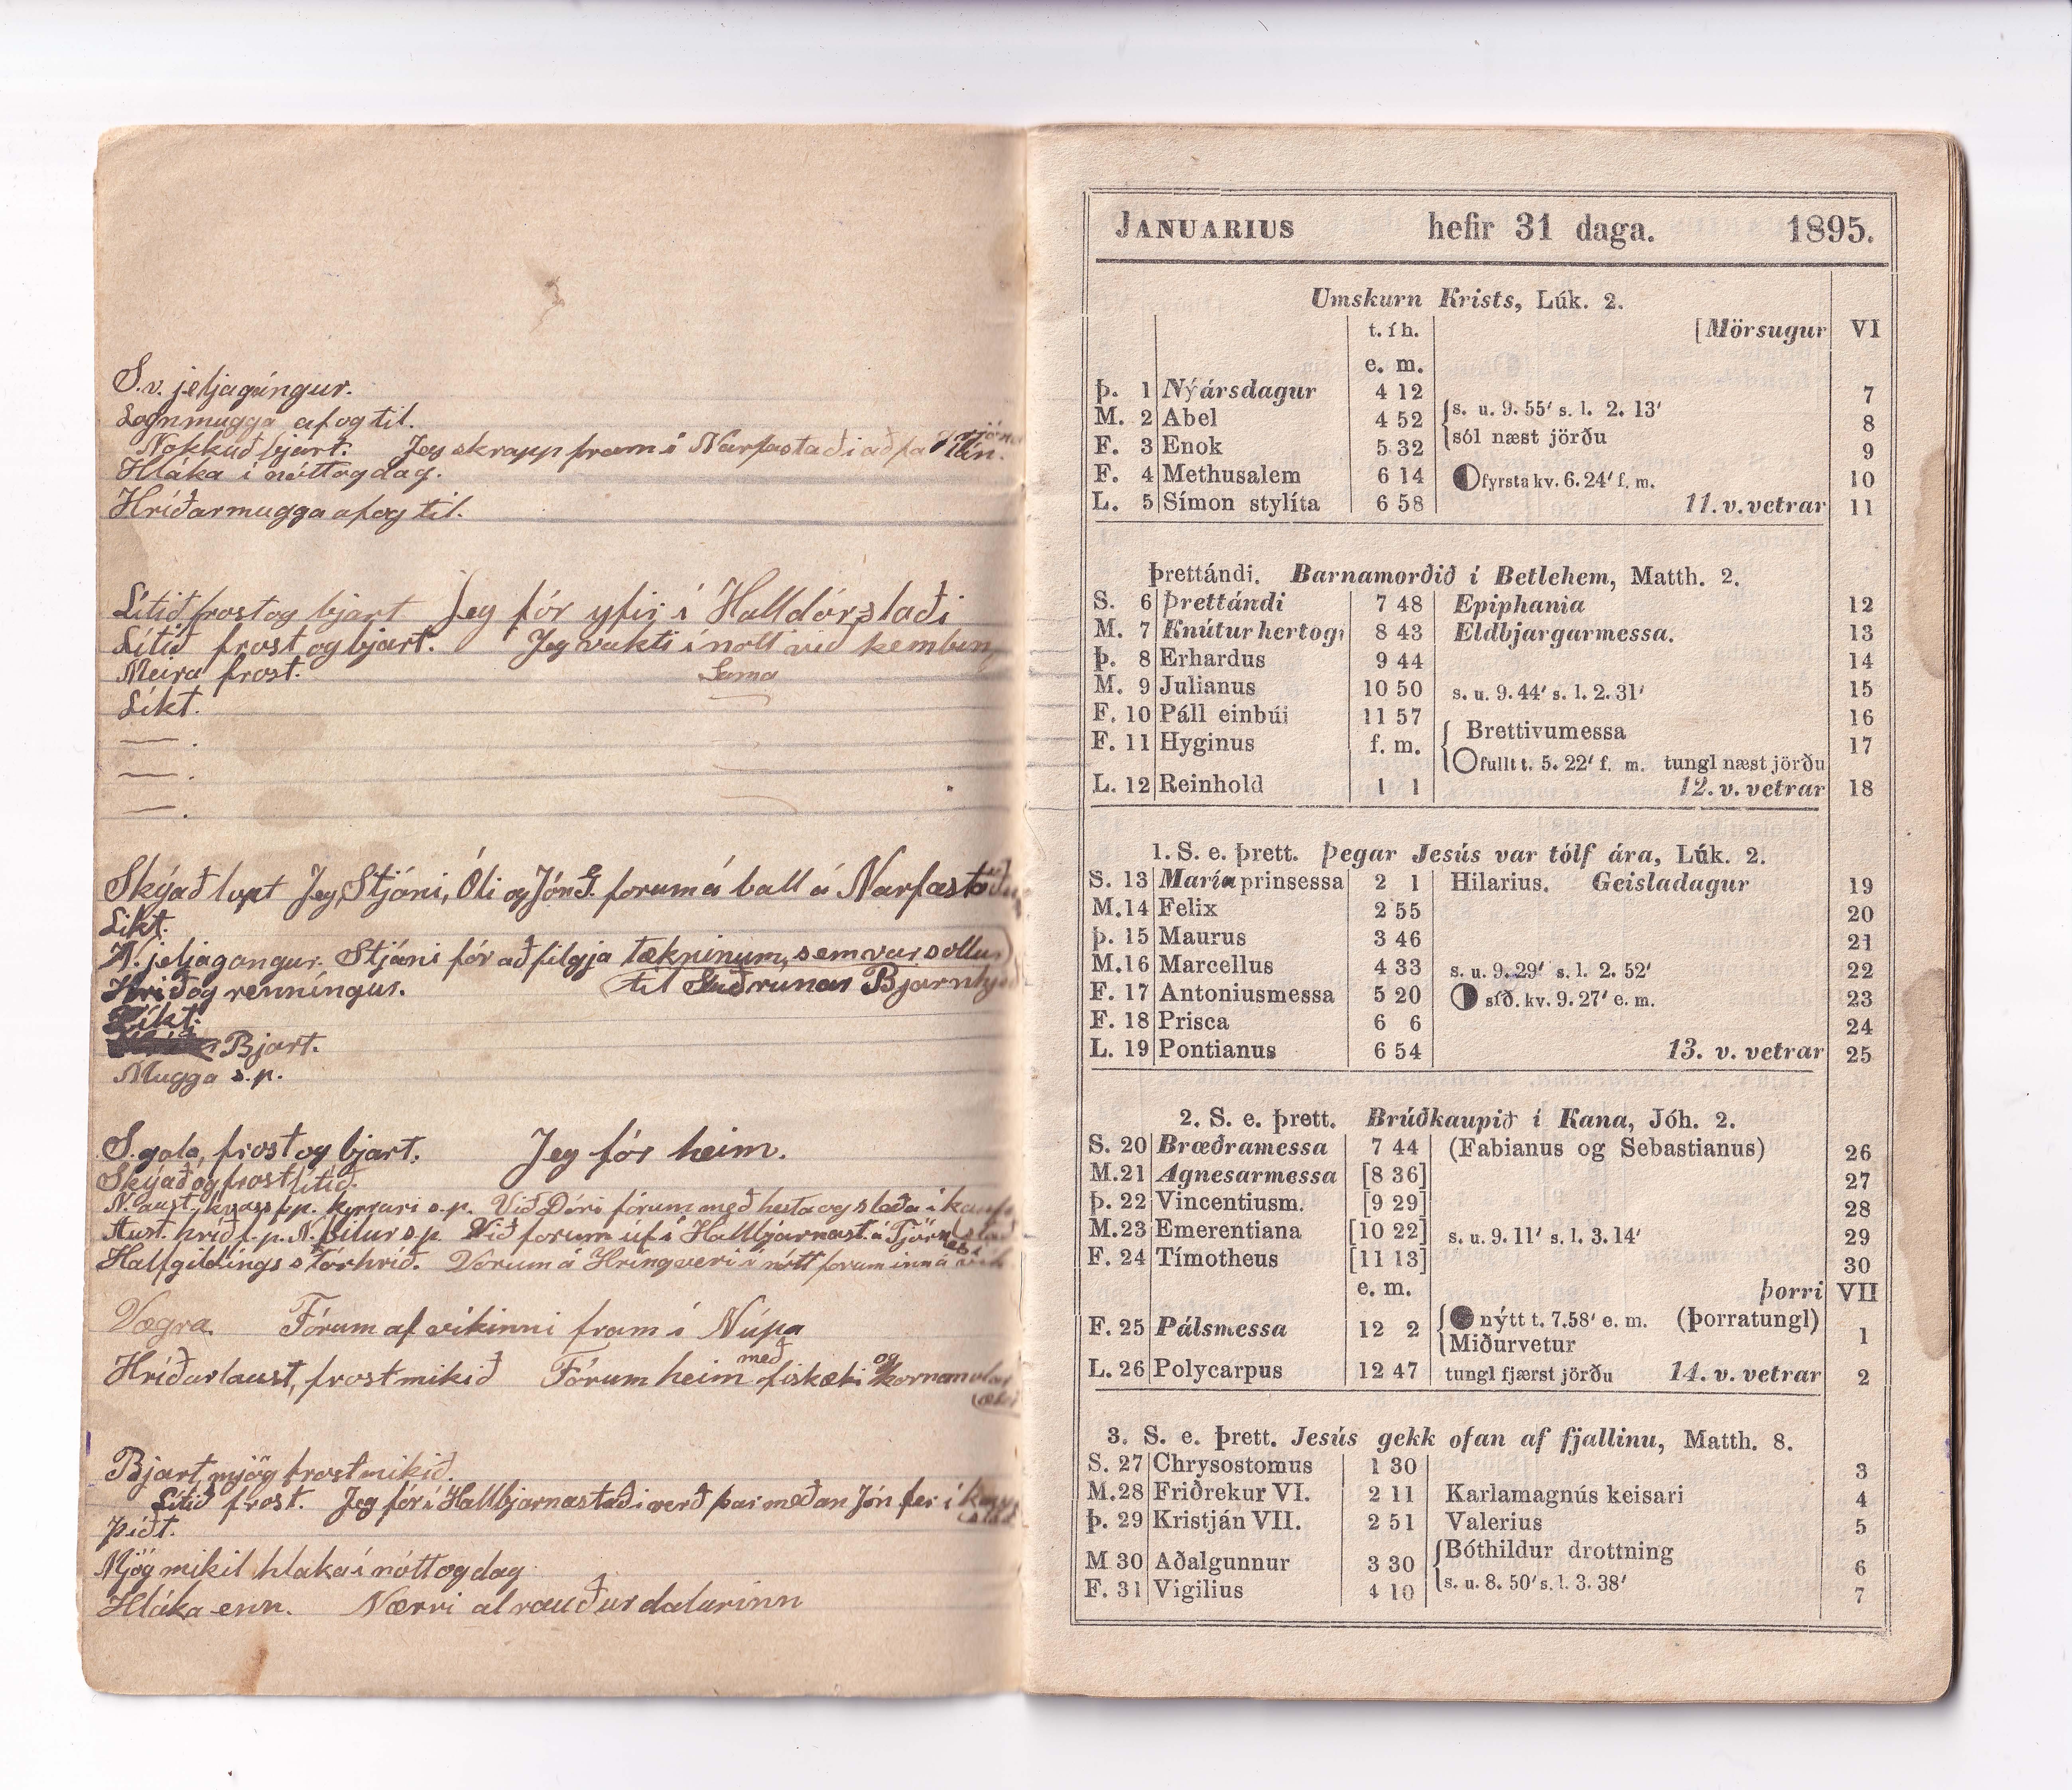 S.v. jeljagángur.
Lognmugga af og til.
Nokkuð bjart. Jeg skrapp fram í Narfastaði að fá lán.
Hláka í nótt og dag.
Hríðarmugga af og til.
Lítið frost og bjart Jeg fór yfir í Halldórsstaði
Lítið frost og bjart. Jeg vakti í nótt við kembun,
Meira frost. Sama
Líkt.
— .
— .
— .
Skýað lopt Jeg, Stjáni, Óli og Jón G. forum á ball á Narfastöðum
Líkt.
N. jeljagangur. Stjáni fór að filgja lækninum, sem var sóttur
Hríð og renníngur. (til Guðrunar
Líkt.
Bjart.
Mugga s.p.
S. gola, frost og bjart. Jeg fór heim.
Skýað og frost lítið.
N. aust. kvass f.p. kyrrari s.p. Við Dóri fórum með hesta og sleða í
Aust. hríð f.p. N. bilur s.p. Við forum úf í Hallbjarnast. á Tjörnesi
Hallgildings stórhríð. Vórum á Hringveri í nótt forum inn á vík
Vægra. Fórum af víkinni fram í Núpa
Hríðarlaust, frost mikið Fórum heim með fiskæki og
Bjart, mjög frost mikið.
Lítið frost. Jeg fór í Hallbjarnastaði verð þar meðan Jón fer í
Þíðt.
Mjög mikil hláka í nótt og dag
Hláka enn. Nærri alrauður dalurinn
JANUARIUS hefir 31 daga. 1895.
Umskurn Krists, Lúk. 2.
t. í h. [Mörsugur VI
e. m.
Þ. 1 Nýársdagur 4 12 7
M. 2 Abel 4 52 s. u. 9. 55′ s. l. 2. 13′ 8
F. 3 Enok 5 32 sól næst jörðu 9
F. 4 Methusalem 6 14 fyrsta kv. 6. 24′ f. m. 10
L. 5 Símon stylíta 6 58 11. v. vetrar 11
Þrettándi. Barnamorðið í Betlehem, Matth. 2.
S. 6 Þrettándi 7 48 Epiphania 12
M. 7 Knútur hertogi 8 43 Eldbjargarmessa. 13
Þ. 8 Erhardus 9 44 14
M. 9 Julianus 10 50 s. u. 9. 44′ s. l. 2. 31′ 15
F. 10 Páll einbúi 11 57 16
Brettivumessa
F. 11 Hyginus f. m. 17
fullt t. 5. 22′ f. m. tungl næst jörðu
L. 12 Reinhold 1 1 12. v. vetrar 18
1. S. e. Þrett. Þegar Jesús var tólf ára, Lúk. 2.
S. 13 María prinsessa 2 1 Hilarius. Geisladagur 19
M. 14 Felix 2 55 20
Þ. 15 Maurus 3 46 21
M. 16 Marcellus 4 33 s. u. 9. 29′ s. l. 2. 52′ 22
F. 17 Antoniusmessa 5 20 síð. kv. 9. 27′ e. m. 23
F. 18 Prisca 6 6 24
L. 19 Pontianus 6 54 13. v. vetrar 25
2. S. e. Þrett. Brúðkaupið í Kana, Jóh. 2.
S. 20 Bræðramessa 7 44 (Fabianus og Sebastianus) 26
M. 21 Agnesarmessa [8 36] 27
Þ. 22 Vincentiusm. [9 29] 28
M. 23 Emerentiana [10 22] s. u. 9. 11′ s. l. 3. 14′ 29
F. 24 Tímotheus [11 13] 30
e. m. Þorri VII
F. 25 Pálsmessa 12 2 nýtt t. 7. 58′ e. m. (Þorratungl) 1
Miðurvetur
L. 26 Polycarpus 12 47 tungl fjærst jörðu 14. v. vetrar 2
3. S. e. Þrett. Jesús gekk ofan af fjallinu, Matth. 8.
S. 27 Chrysostomus 1 30 3
M. 28 Friðrekur VI. 2 11 Karlamagnús keisari 4
Þ. 29 Kristján VII. 2 51 Valerius 5
M 30 Aðalgunnur 3 30 Bóthildur drottning 6
F. 31 Vigilius 4 10 s. u. 8. 50′ s. l. 3. 38′ 7